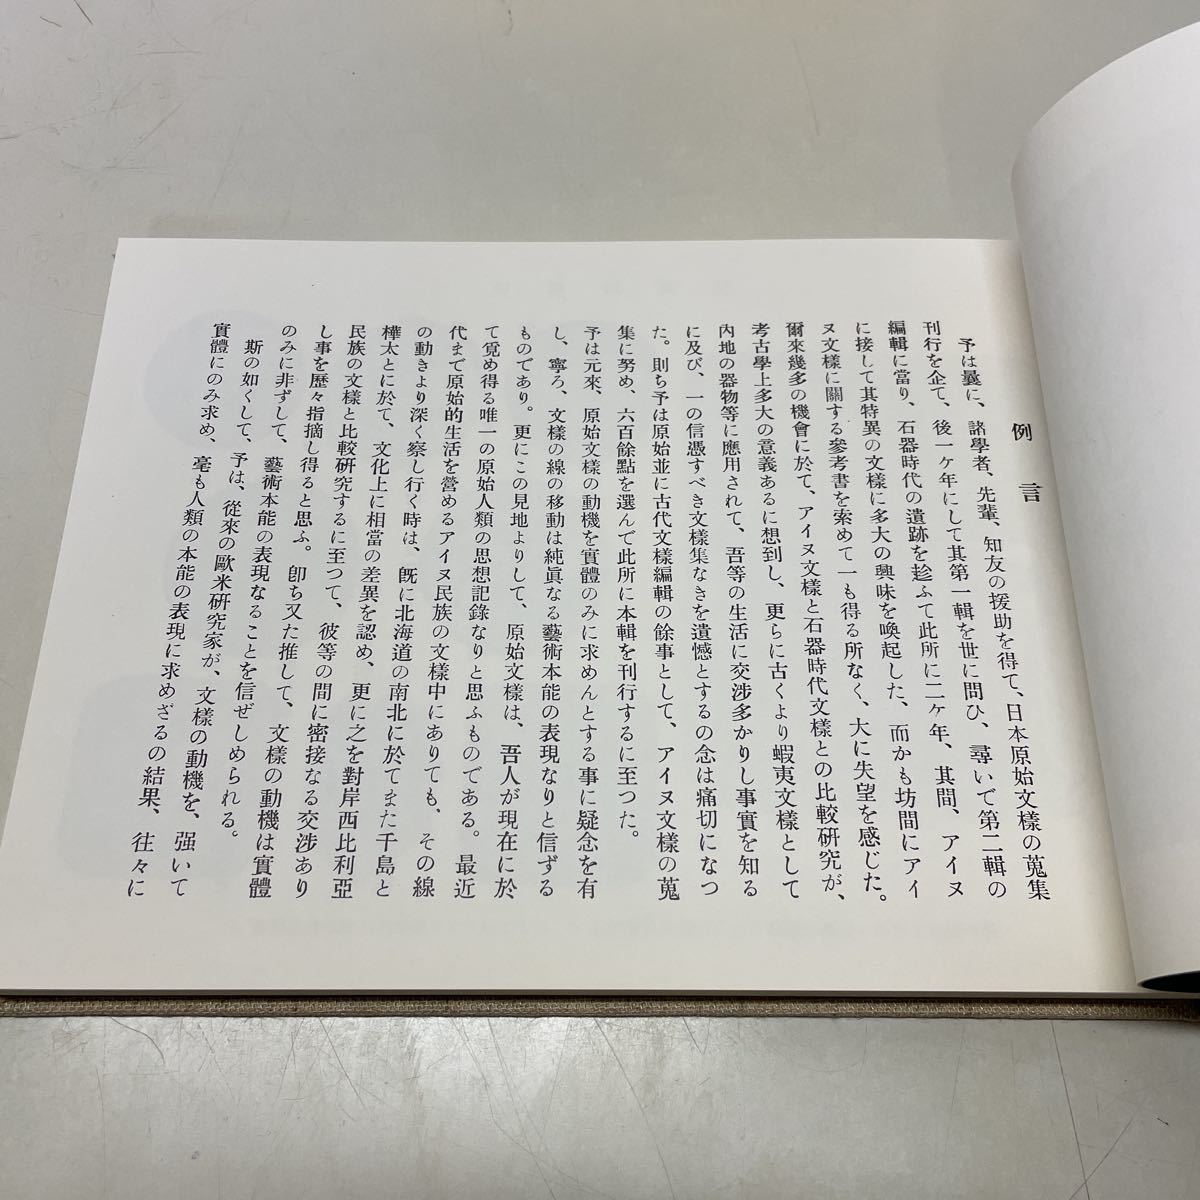 例言
予は曩に、諸學者、先輩、知友の援助を得て、日本原始文様の蒐集
刊行を企て、後一ヶ年にして其第一輯を世に問ひ、尋いで第二輯の
編輯に當り、石器時代の遺跡を趁ふて此所に二ヶ年、其間、アイヌ
に接して其特異の文様に多大の興味を喚起した、而かも坊間にアイ
ヌ文様に關する參考書を索めて一も得る所なく、大に失望を感じた。
爾來幾多の機會に於て、アイヌ文様と石器時代文様との比較研究が、
考古學上多大の意義あるに想到し、更らに古くより蝦夷文様として
內地の器物等に應用されて、吾等の生活に交涉多かりし事實を知る
に及び、一の信憑すべき文様集なきを遺憾とするの念は痛切になつ
た。則ち予は原始並に古代文様編輯の餘事として、アイヌ文様の蒐
集に努め、六百餘點を選んで此所に本輯を刊行するに至つた。
予は元來、原始文様の動機を實體のみに求めんとする事に疑念を有
し、寧ろ、文様の線の移動は純眞なる藝術本能の表現なりと信ずる
ものであり。更にこの見地よりして、原始文様は、吾人が現在に於
て覓め得る唯一の原始人類の思想記錄なりと思ふものである。最近
代まで原始的生活を營めるアイヌ民族の文様中にありても、その線
の動きより深く察し行く時は、既に北海道の南北に於てまた千島と
樺太とに於て、文化上に相當の差異を認め、更に之を對岸西比利亞
民族の文様と比較研究するに至つて、彼等の間に密接なる交涉あり
し事を歷々指摘し得ると思ふ。卽ち又た推して、文様の動機は實體
のみに非ずして、藝術本能の表現なることを信ぜしめられる。
斯の如くして、予は、從來の歐米研究家が、文様の動機を、强いて
實體にのみ求め、毫も人類の本能の表現に求めざるの結果、往々に